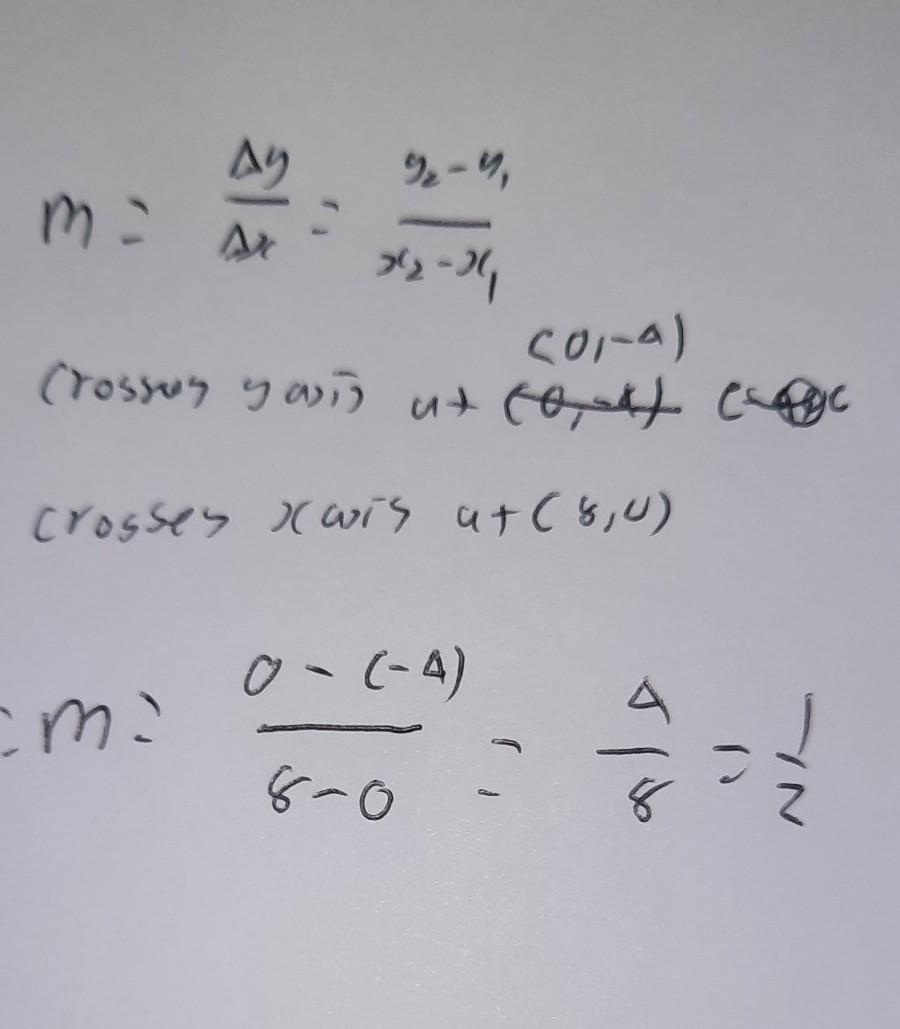 m = Δy/Δx = y₂-y₁/x₂-x₁
(0,-4)
crosses y axis at (0,-4)
crosses x axis at (8,0)
m = 0-(-4)/8-0 = 4/8 = 1/2